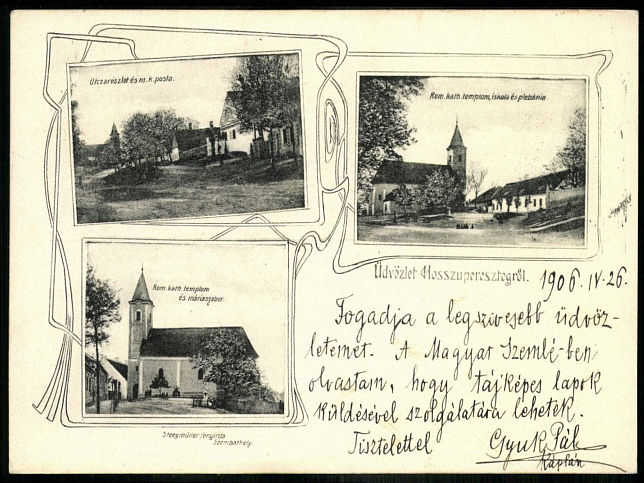 Utczarészlet és m. k. posta.
Rom. kath. templom, iskola és plebánia.
Rom. kath. templom
és máriaszobor.
Üdvözlet Hosszuperesztegről.
1906. IV-26.
Fogadja a legszivesebb üdvöz-
letemet. A Magyar Szemlé-ben
olvastam, hogy tájképes lapok
küldésével szolgálatára lehetek.
Tisztelettel
Gyuk Pál
káplán
Stegmüller fényirda
Szombathely.